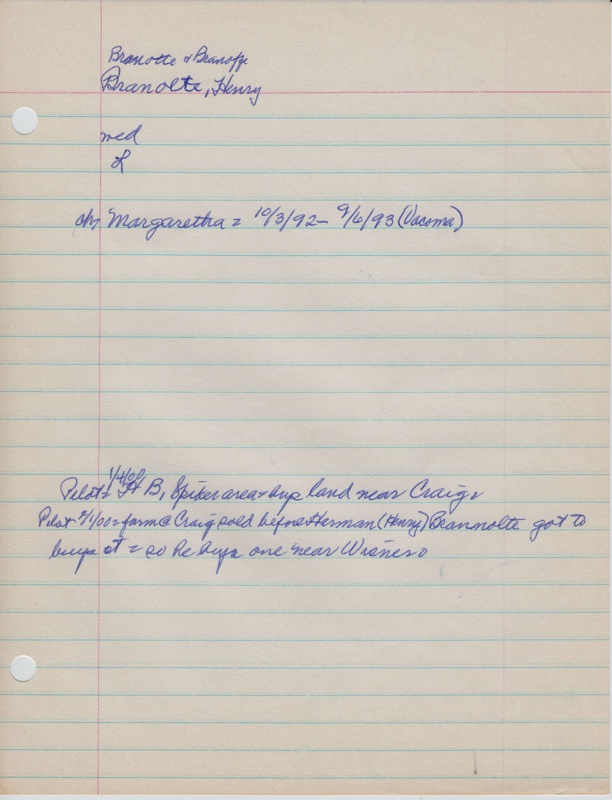 Branotte + Branoffe
Branolte, Henry
med
L
ch, Margaretha = 10/3/92 - 9/6/93 (Vacoma)
1/4/00
Pilot = H B, Spiker area + buys land near Craig.
Pilot 9/1/00 = farm @ Craig sold before Herman (Henry) Brannolte got to
buy it = so he buys one near Wisner.